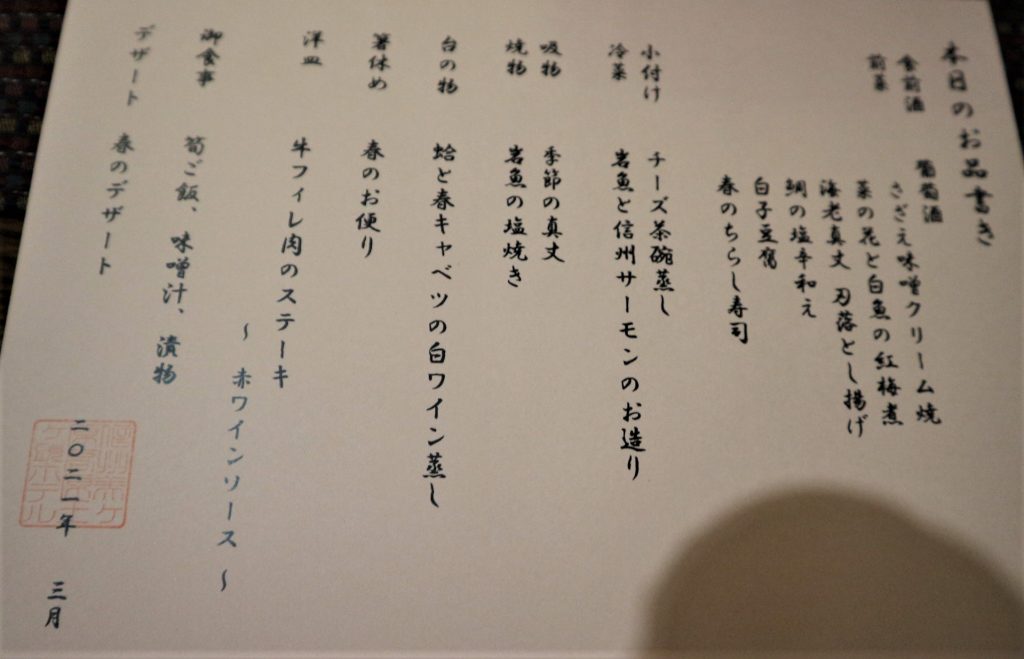 本日のお品書き
食前酒 葡萄酒
前菜 さざえ味噌クリーム焼
菜の花と白魚の紅梅煮
海老真丈 刃落とし揚げ
鯛の塩辛和え
白子豆腐
春のちらし寿司
小付け チーズ茶碗蒸し
冷菜 岩魚と信州サーモンのお造り
吸物 季節の真丈
焼物 岩魚の塩焼き
台の物 蛤と春キャベツの白ワイン蒸し
箸休め 春のお便り
洋皿 牛フィレ肉のステーキ
～ 赤ワインソース ～
御食事 筍ご飯、味噌汁、漬物
デザート 春のデザート
二〇二一年 三月